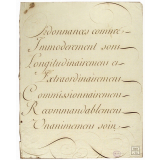 Adonnances comme
Immoderement sont
Longitudinairement et
Extraordinairement
Commissionnairement
Recommandablement
Unanimement sont